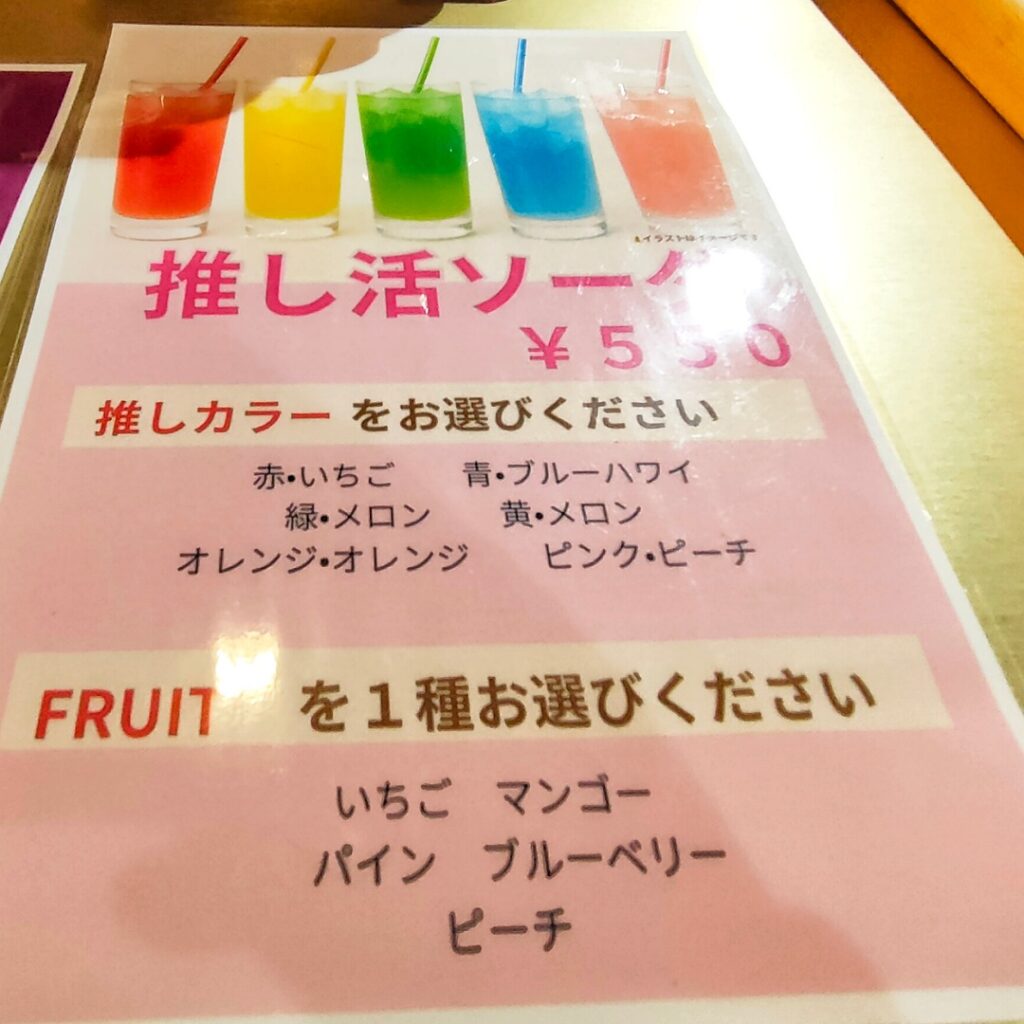 ※イラストはイメージです
推し活ソーダ
￥５５０
推しカラー をお選びください
赤・いちご 青・ブルーハワイ
緑・メロン 黄・メロン
オレンジ・オレンジ ピンク・ピーチ
FRUIT を１種お選びください
いちご マンゴー
パイン ブルーベリー
ピーチ